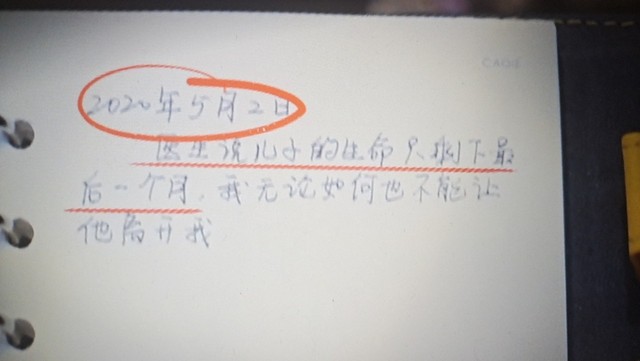 2020年5月2日
医生说儿子的生命只剩下最
后一个月，我无论如何也不能让
他离开我